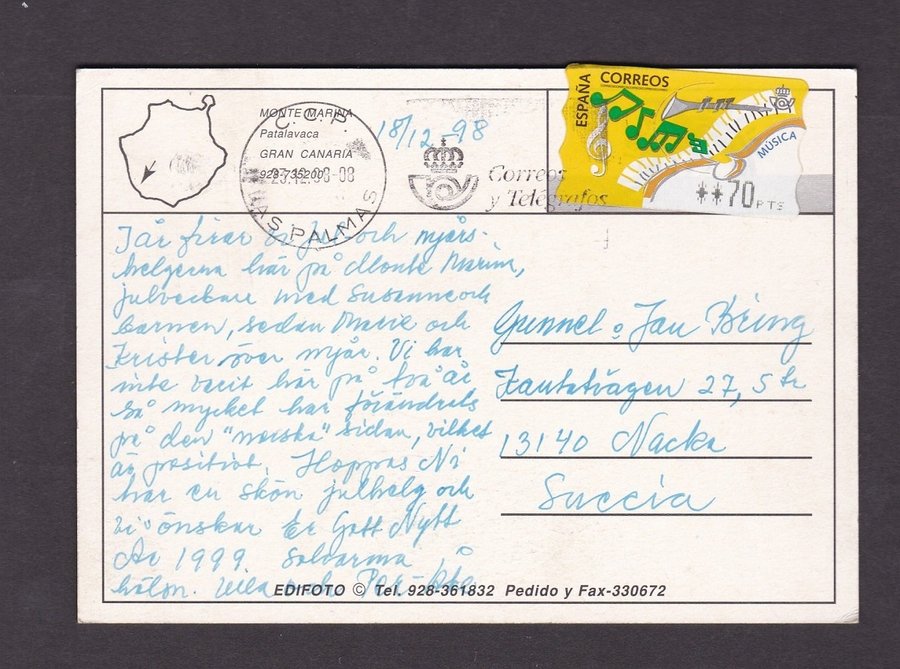 MONTE MARINA
Patalavaca
GRAN CANARIA
928-735200
C.C.P.
LAS PALMAS
18/12-98
Correos
y Telégrafos
ESPAÑA
CORREOS
MÚSICA
**70 PTS
I år firar vi jul och nyårs-
helgerna här på Monte Marina,
julveckan med Susanne och
barnen, sedan Marie och
Krister över nyår. Vi har
inte varit här på två år
så mycket har förändrats
på den "norska" sidan, vilket
är positivt. Hoppas Ni
har en skön julhelg och
vi önskar Er Gott Nytt
År 1999. Solvarma
hälsn. och Per-
Gunnel o Jan Bring
27, 5 tr
13140 Nacka
Suecia
EDIFOTO © Tel. 928-361832 Pedido y Fax-330672